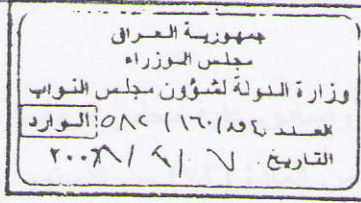 جمهورية العراق
مجلس الوزراء
وزارة الدولة لشؤون مجلس النواب
العدد الوارد
التاريخ